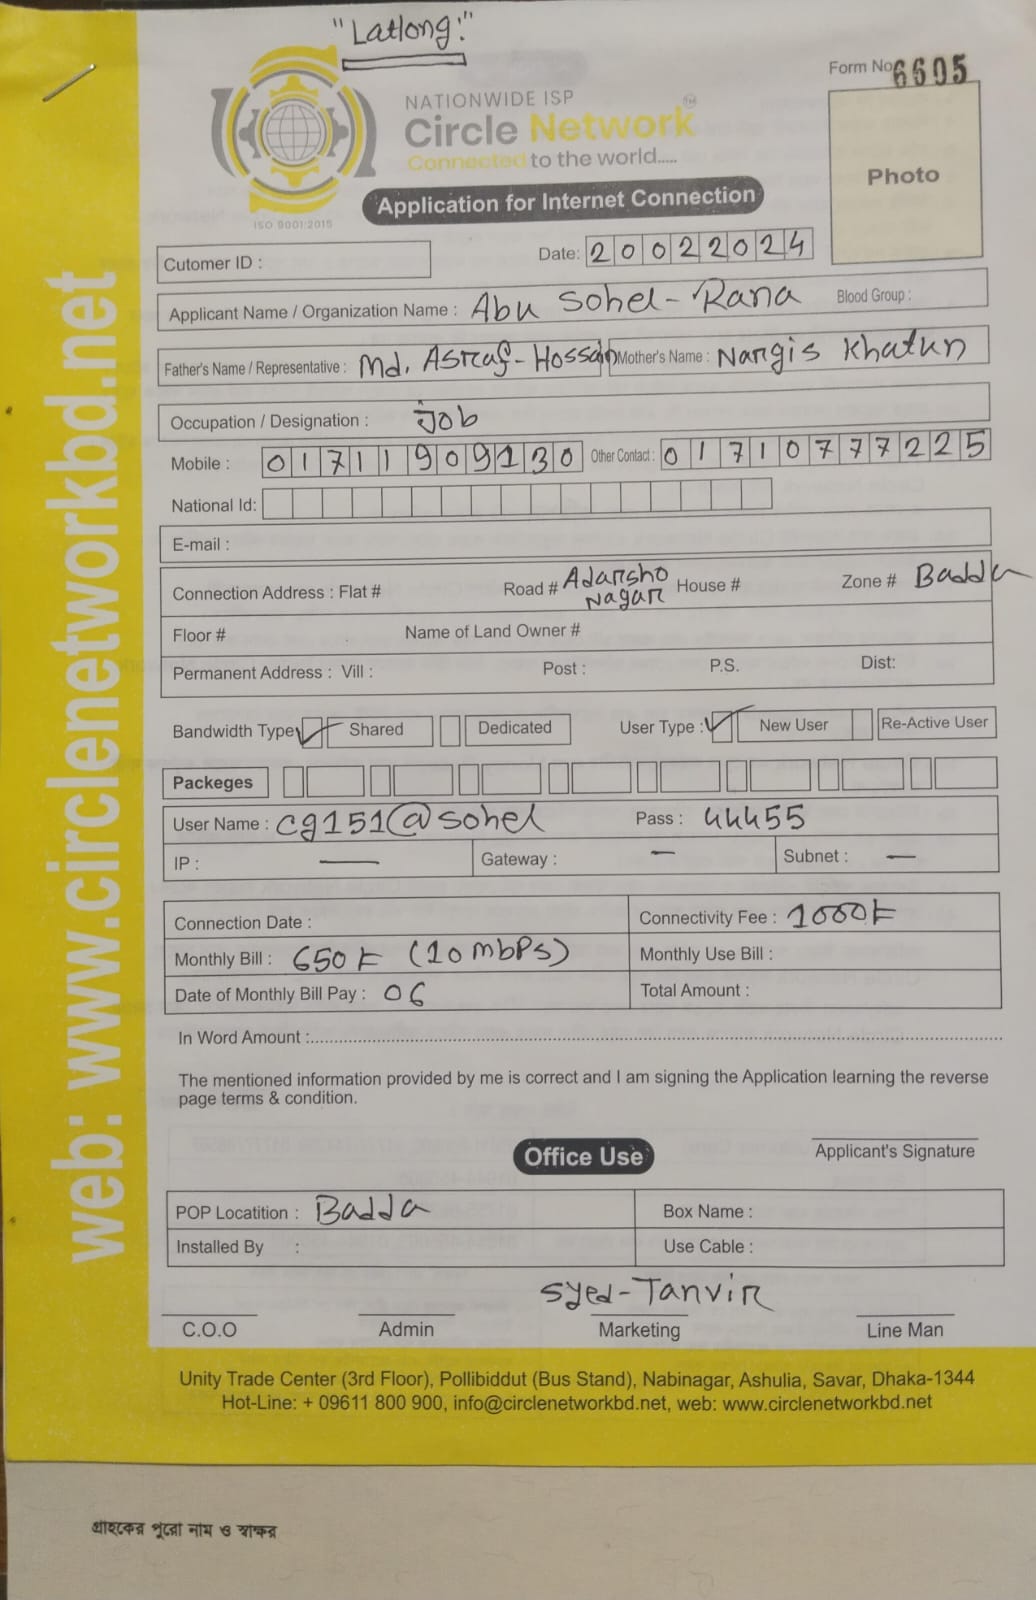 "Latlong:"
Form No 6605
NATIONWIDE ISP
Circle Network TM
Connected to the world.....
ISO 9001:2015
Photo
Application for Internet Connection
Cutomer ID :
Date: 20022024
Applicant Name / Organization Name : Abu Sohel-Rana Blood Group :
Father's Name / Representative : Md. Asraf-Hossain Mother's Name : Nargis Khatun
Occupation / Designation : Job
Mobile : 01711909130 Other Contact : 01710777225
National Id:
E-mail :
Connection Address : Flat # Road # Adarsho Nagar House # Zone # Badda
Floor # Name of Land Owner #
Permanent Address : Vill : Post : P.S. Dist:
Bandwidth Type Shared Dedicated User Type : New User Re-Active User
Packeges
User Name : cg151@sohel Pass : 44455
IP : — Gateway : — Subnet : —
Connection Date : Connectivity Fee : 1000৳
Monthly Bill : 650৳ (10 mbps) Monthly Use Bill :
Date of Monthly Bill Pay : 06 Total Amount :
In Word Amount :
The mentioned information provided by me is correct and I am signing the Application learning the reverse
page terms & condition.
Office Use
Applicant's Signature
POP Locatition : Badda Box Name :
Installed By : Use Cable :
Syed-Tanvir
C.O.O Admin Marketing Line Man
Unity Trade Center (3rd Floor), Pollibiddut (Bus Stand), Nabinagar, Ashulia, Savar, Dhaka-1344
Hot-Line: + 09611 800 900, info@circlenetworkbd.net, web: www.circlenetworkbd.net
web: www.circlenetworkbd.net
গ্রাহকের পুরো নাম ও স্বাক্ষর